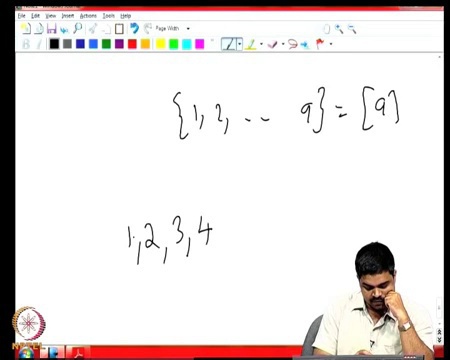 File Edit View Insert Actions Tools Help
Page Width
{1, 2, .. 9} = [9]
1, 2, 3, 4